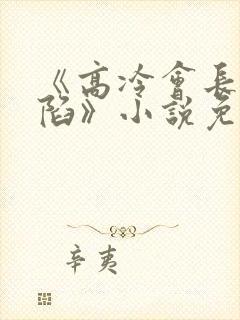 《高冷會長
陷》小說免
辛夷